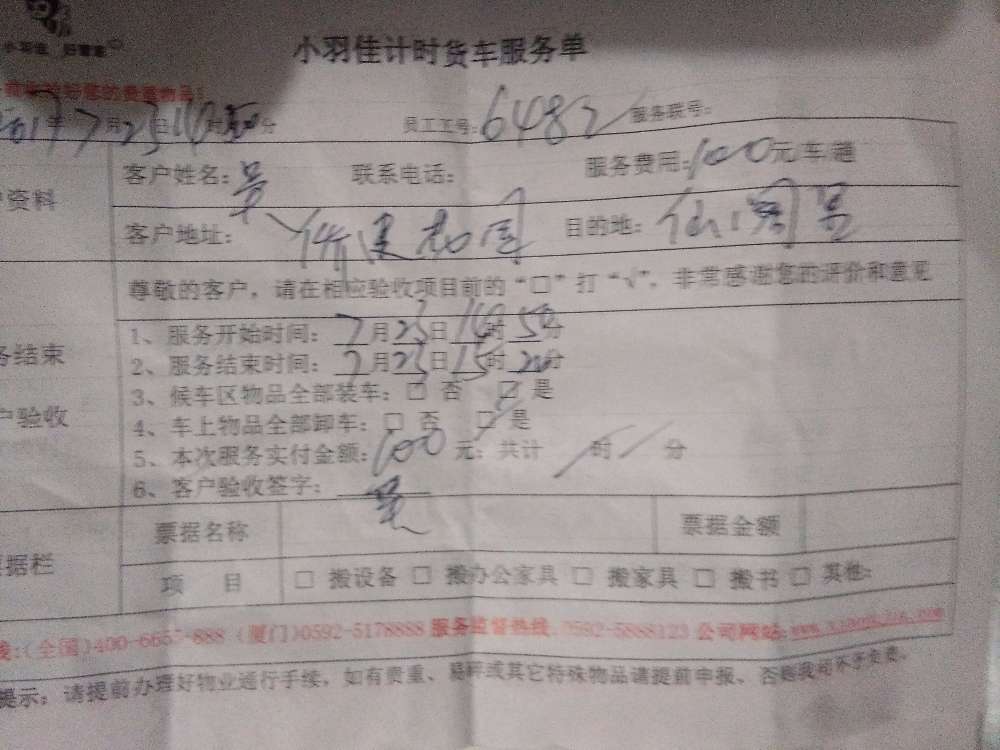 小羽佳计时货车服务单
小羽佳 好管家
收好您的贵重物品
2017年7月23日14时50分 员工工号:6482 服务联号:
资料 客户姓名:吴 联系电话: 服务费用:100元/车/趟
客户地址: 目的地:
尊敬的客户,请在相应验收项目前的“□”打“√”,非常感谢您的评价和意见
务结束
户验收
1、服务开始时间: 7月23日14时50分
2、服务结束时间: 7月23日15时20分
3、候车区物品全部装车:□ 否 ☑ 是
4、车上物品全部卸车:□ 否 ☑ 是
5、本次服务实付金额:100元;共计 / 时 / 分
6、客户验收签字: 吴
票据栏 票据名称 票据金额
项 目 □ 搬设备 □ 搬办公家具 □ 搬家具 □ 搬书 □ 其他:
线:(全国)400-6657-888 (厦门)0592-5178888 服务监督热线:0592-5888123 公司网站:
提示:请提前办理好物业通行手续,如有贵重、易碎或其它特殊物品请提前申报、否则我司不予负责。